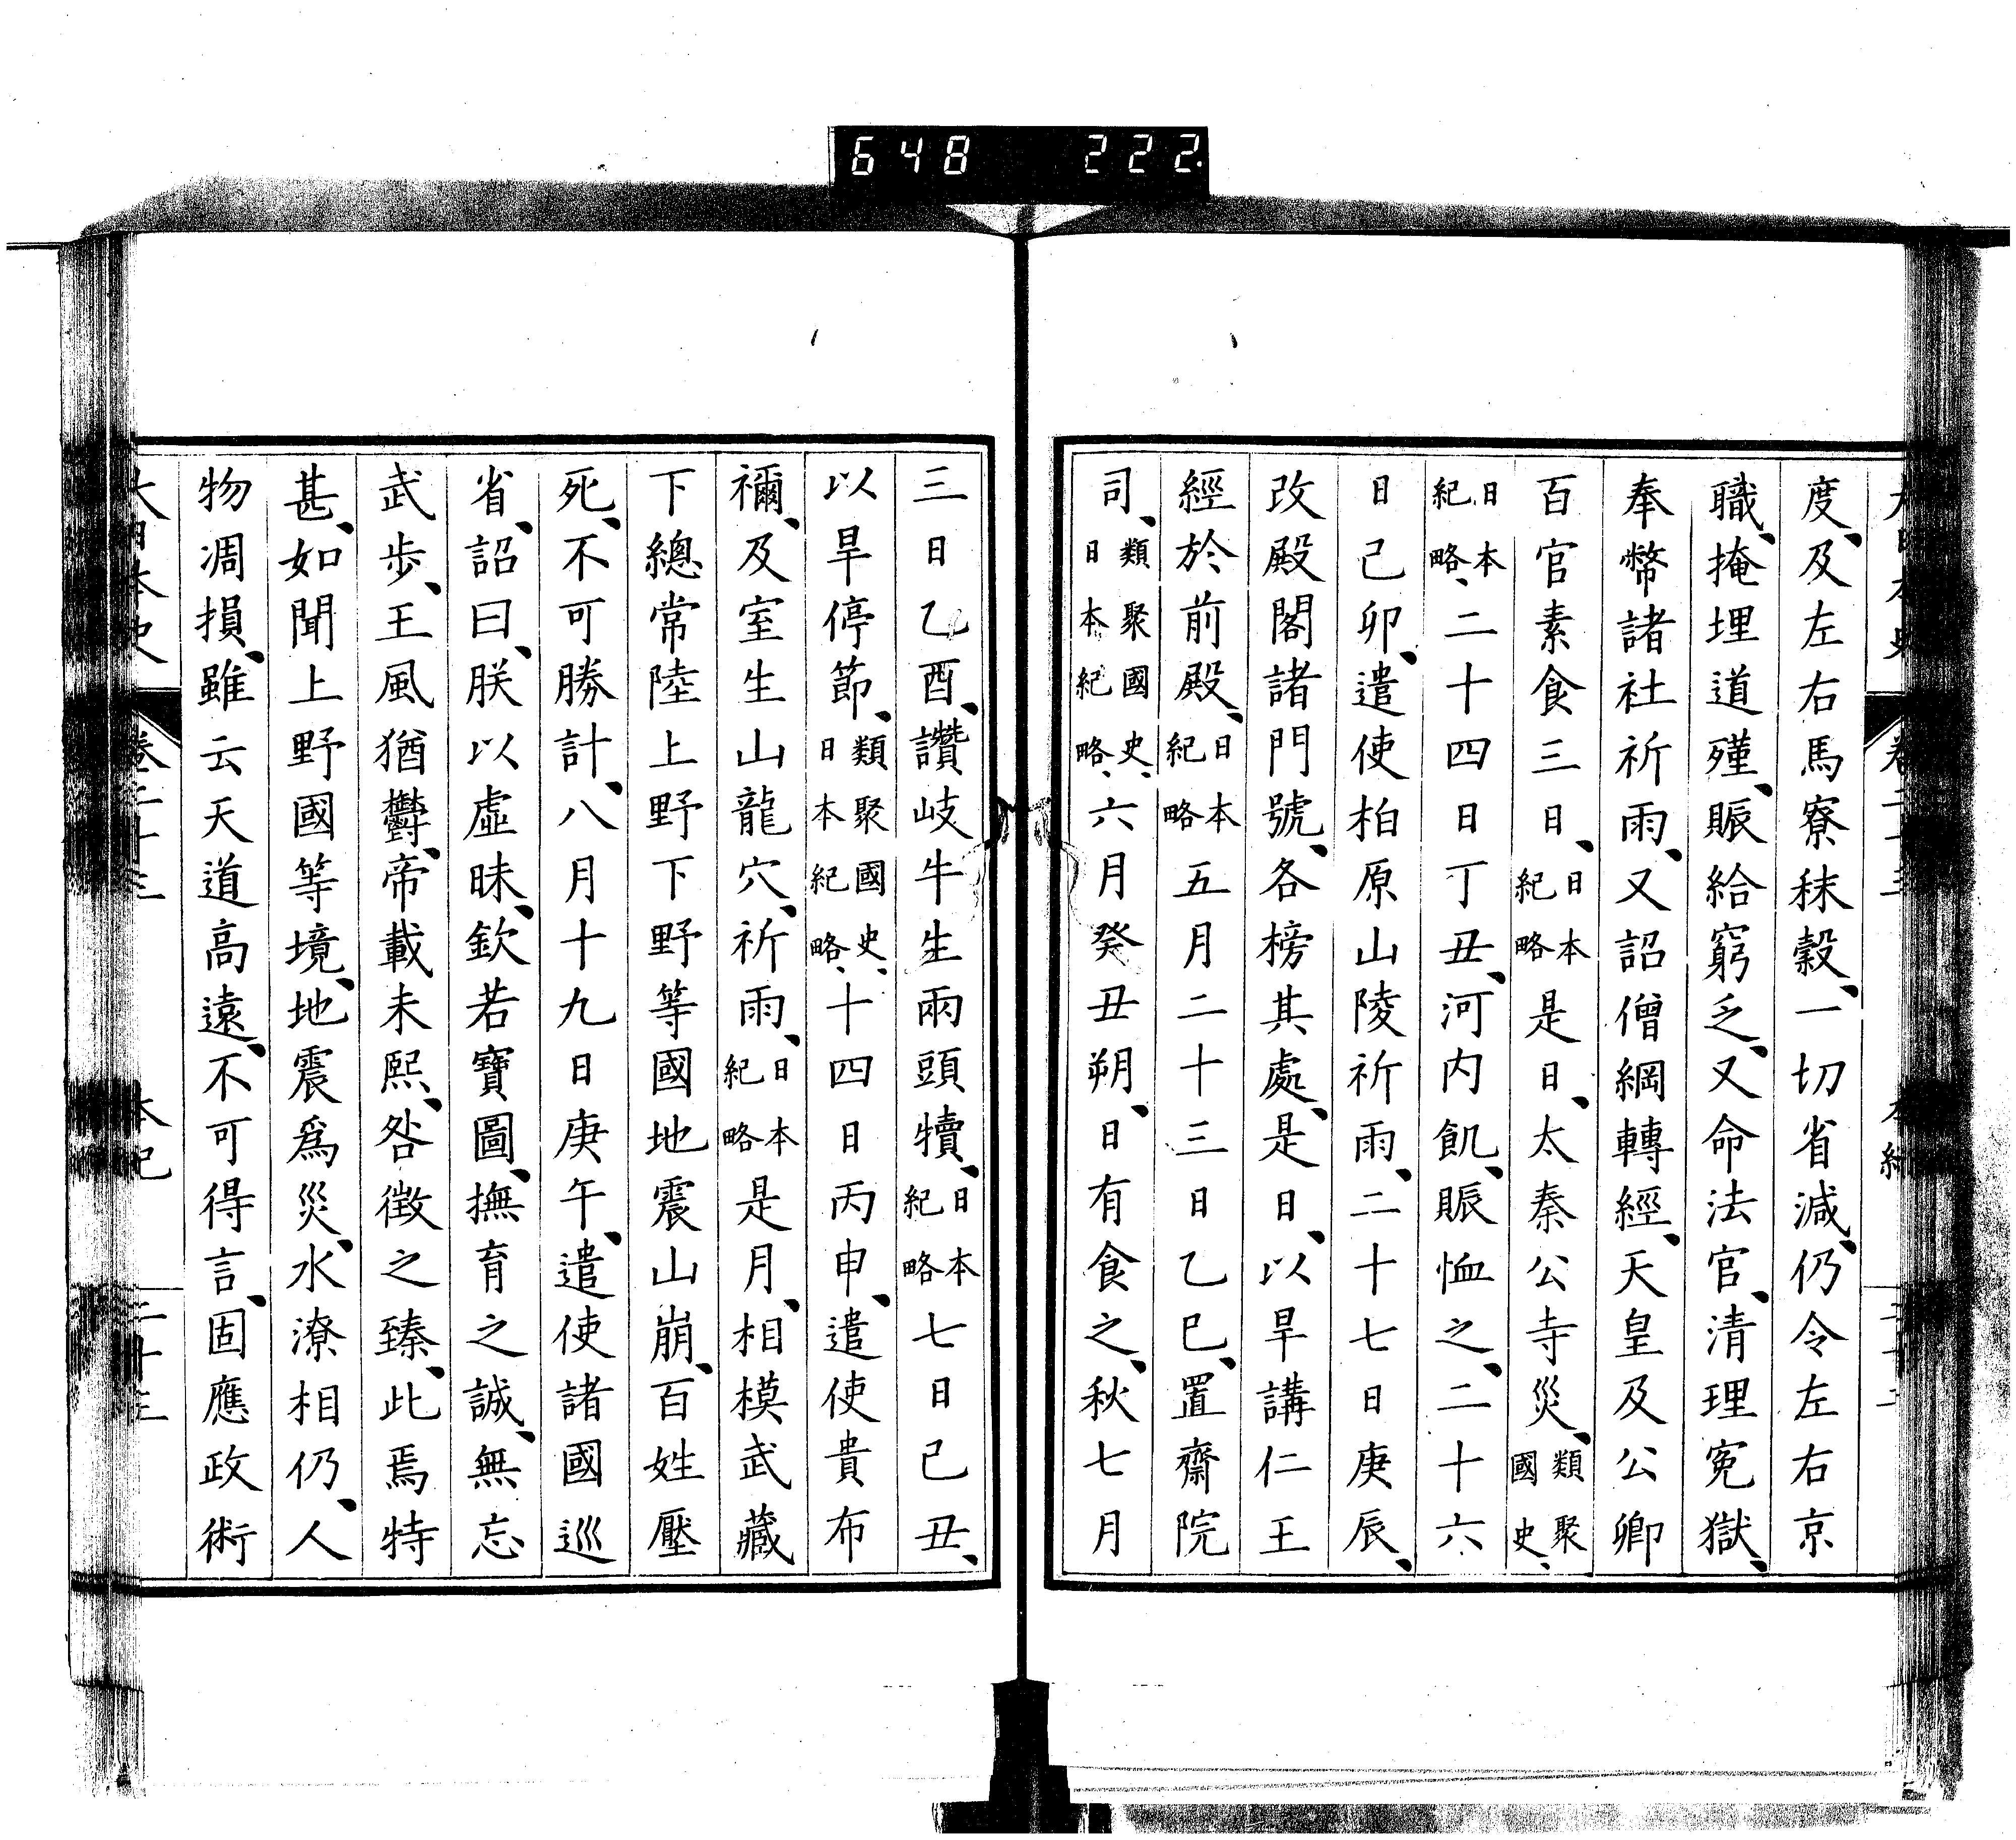 648 222
度、及左右馬寮秣穀、一切省減、仍令左右京
職、掩埋道殣、賑給窮乏、又命法官、清理冤獄、
奉幣諸社祈雨、又詔僧綱轉經、天皇及公卿
百官素食三日、日本紀略是日、太秦公寺災、類聚國史、
日本紀略、二十四日丁丑、河内飢、賑恤之、二十六
日己卯、遣使柏原山陵祈雨、二十七日庚辰、
改殿閣諸門號、各榜其處、是日、以旱講仁王
經於前殿、日本紀略五月二十三日乙巳、置齋院
司、類聚國史、日本紀略、六月癸丑朔、日有食之、秋七月
三日乙酉、讚岐牛生兩頭犢、日本紀略七日己丑、
以旱停節、類聚國史、日本紀略、十四日丙申、遣使貴布
禰、及室生山龍穴、祈雨、日本紀略是月、相模武藏
下總常陸上野下野等國地震山崩、百姓壓
死、不可勝計、八月十九日庚午、遣使諸國巡
省、詔曰、朕以虛昧、欽若寶圖、撫育之誠、無忘
武步、王風猶鬱、帝載未熙、咎徵之臻、此焉特
甚、如聞上野國等境、地震爲災、水潦相仍、人
物凋損、雖云天道高遠、不可得言、固應政術
大日本史 卷二十三 本紀 二十三